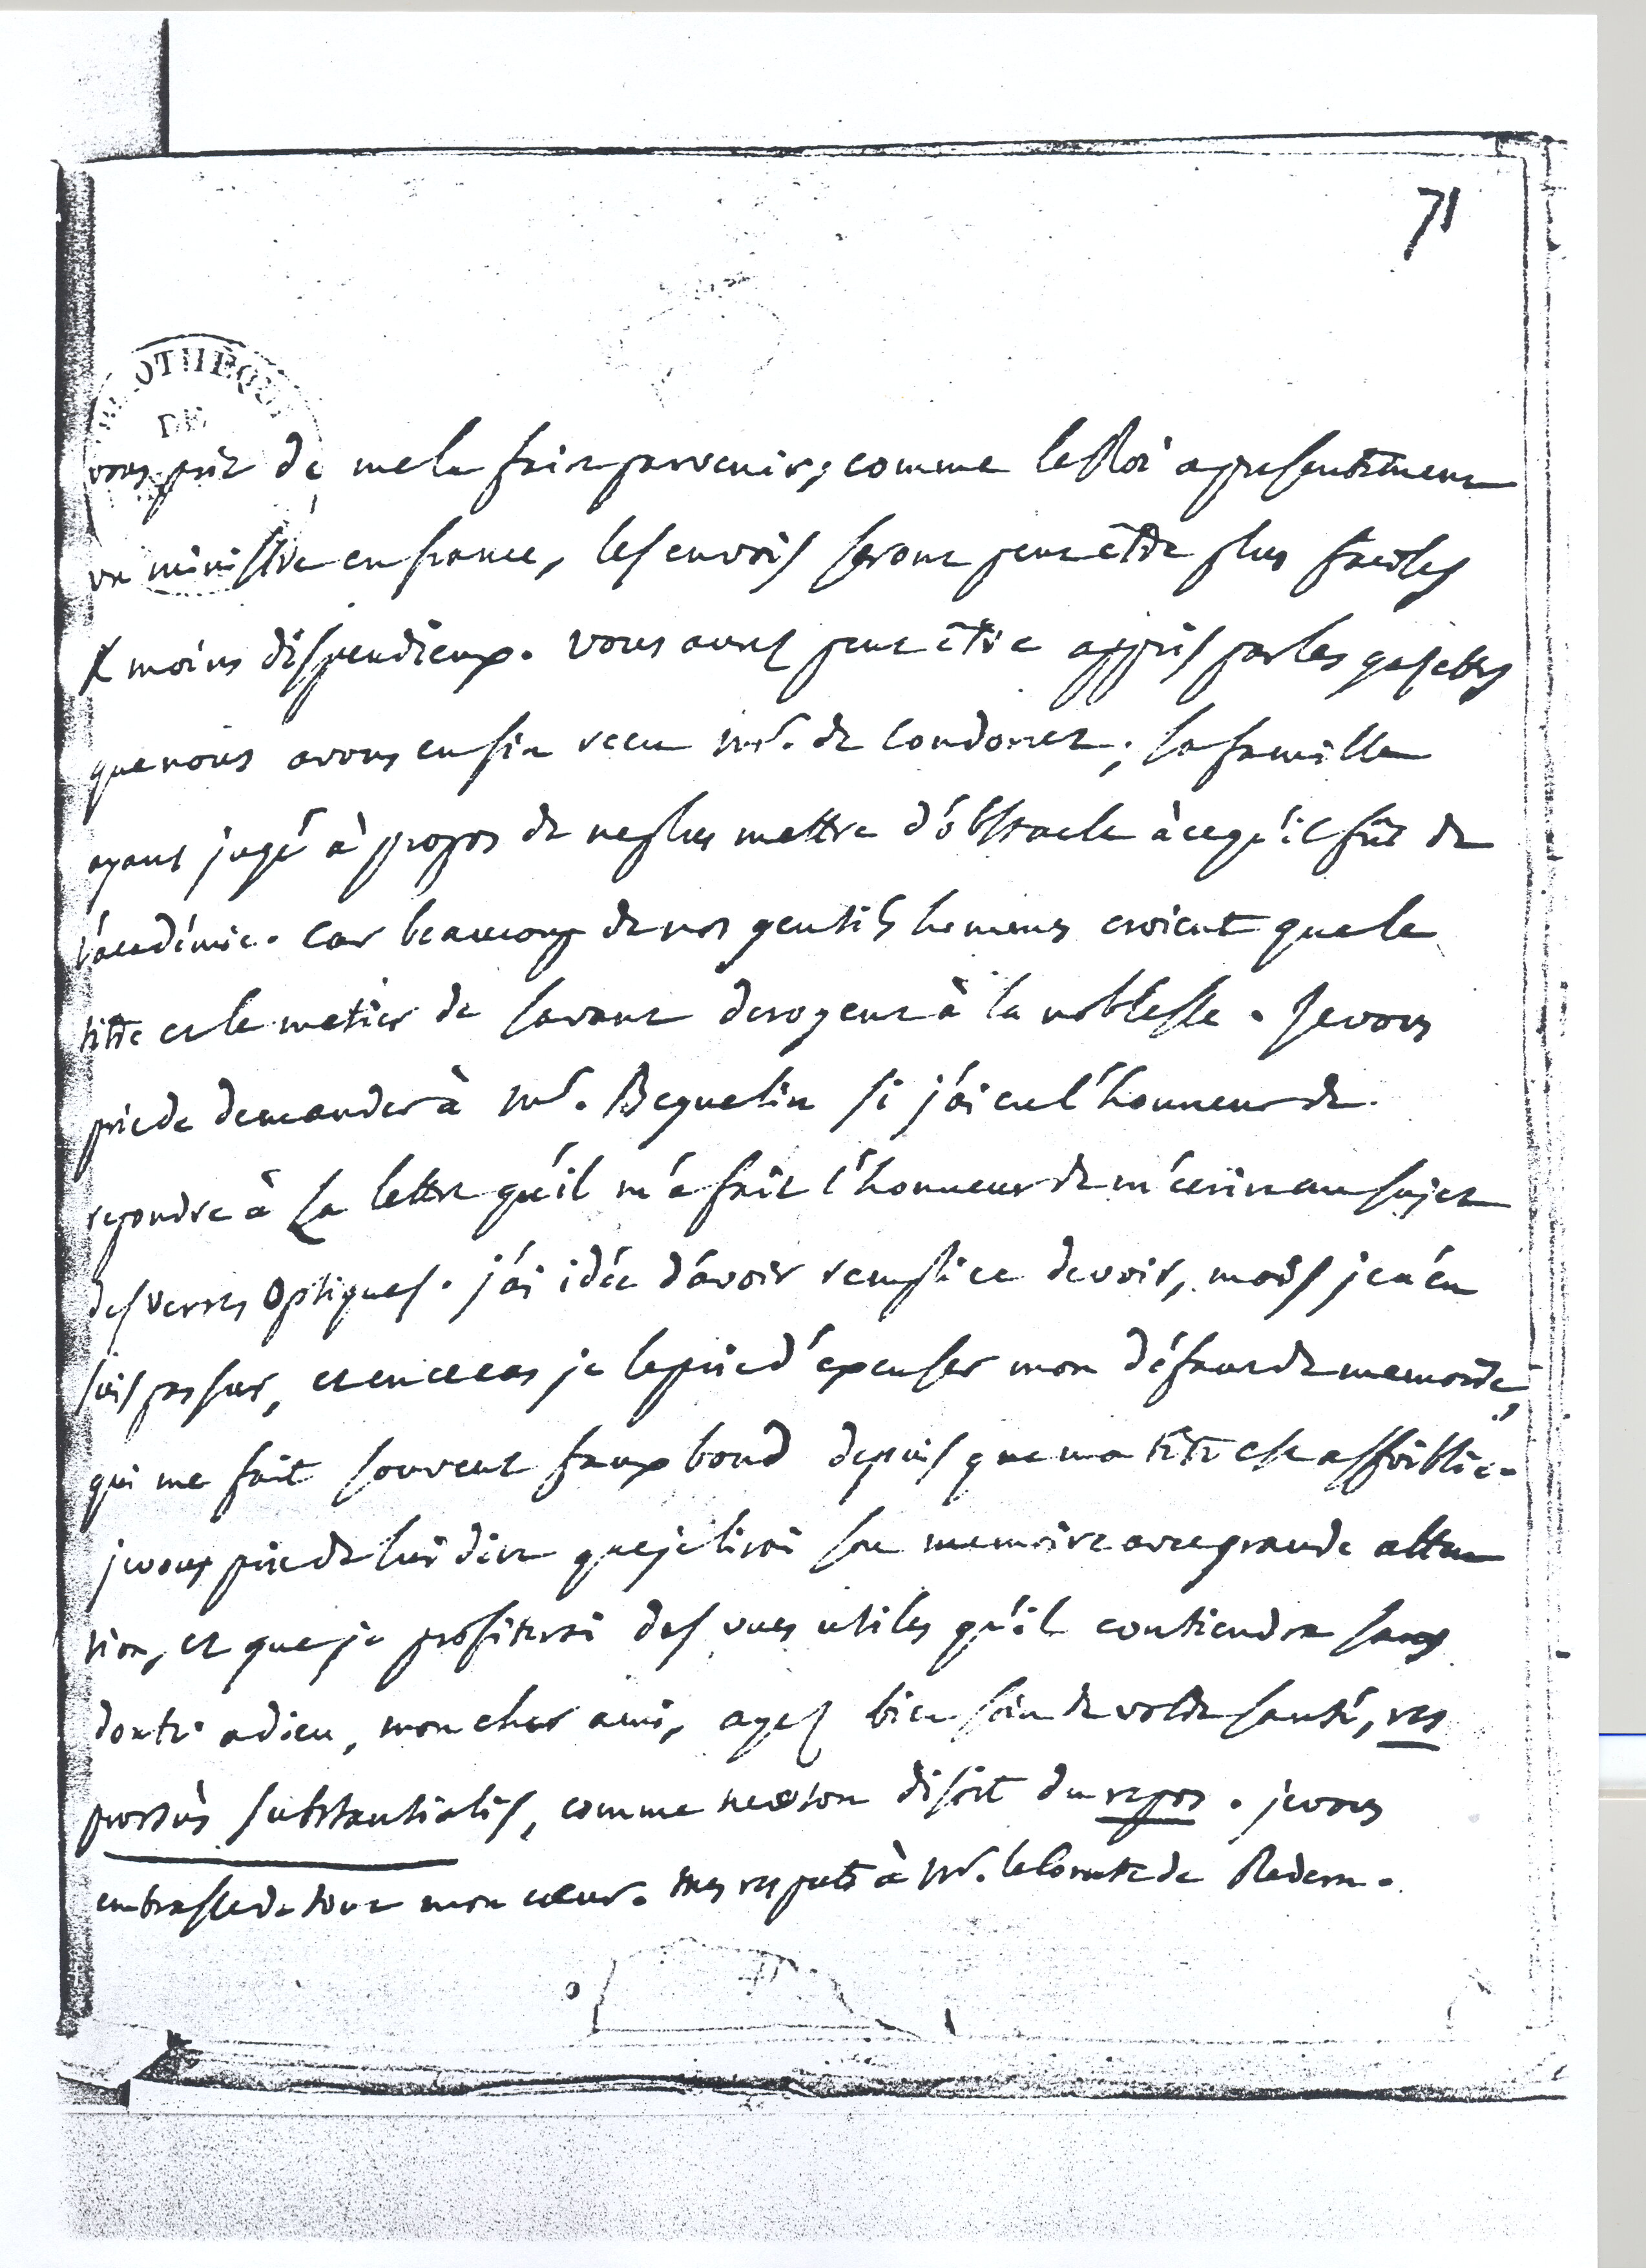 71
OTHEQU
DE
vous prie de me le faire parvenir; comme le Roi a presentement
un ministre en france, les envois seront peut etre plus faciles
& moins dispendieux. vous avez peut etre appris par les gazettes
que nous avons enfin reçu Mr. de Condorcet; sa famille
ayant jugé à propos de ne plus mettre d'obstacle à ce qu'il fût de
l'académie. car beaucoup de nos gentils hommes croient que le
titre et le metier de savant derogent à la noblesse. Je vous
prie de demander à Mr. Beguelin si j'ai eu l'honneur de
repondre à La lettre qu'il m'a fait l'honneur de m'écrire au sujet
des verres Optiques. j'ai idée d'avoir rempli ce devoir, mais je n'en
suis pas sur, et en ce cas je le prie d'excuser mon défaut de memoire,
qui me fait souvent faux bond depuis que ma tête est affoiblie.
je vous prie de lui dire que je lirai son memoire avec grande atten
tion, et que je profiterai des vues utiles qu'il contiendra sans
doute. adieu, mon cher ami, ayez bien soin de votre santé, res
prorsùs substantialis, comme newton disoit du repos. je vous
embrasse de tout mon cœur. mes respects à Mr. le Comte de Redern.